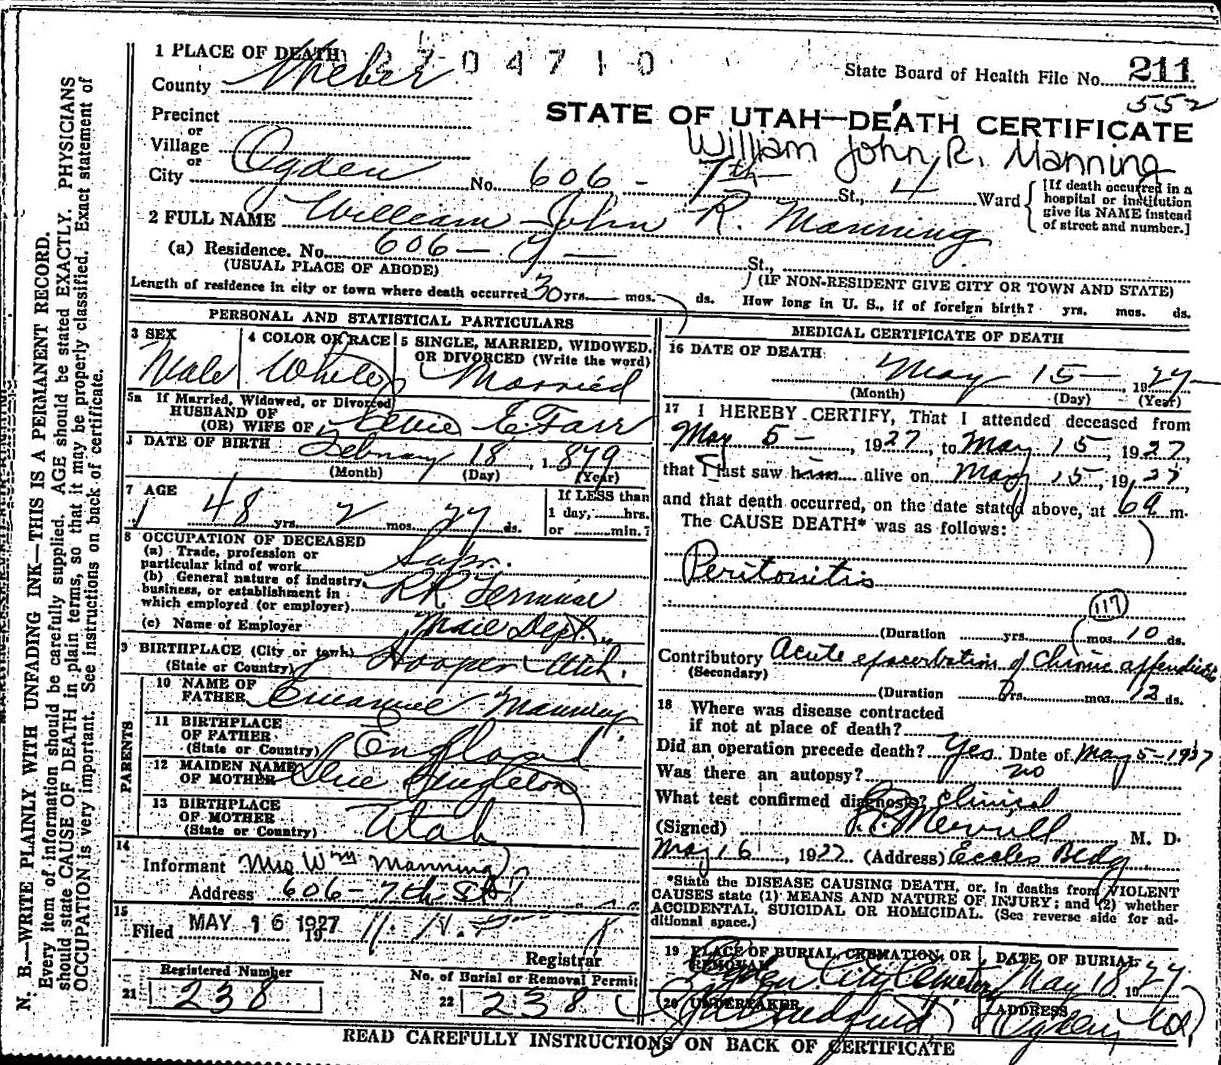 1 PLACE OF DEATH 2704710
State Board of Health File No. 211
County Weber
552
Precinct
STATE OF UTAH—DEATH CERTIFICATE
or
Village
William John R. Manning
or
City Ogden No. 606 - 7th St., 4 Ward
[If death occurred in a hospital or institution give its NAME instead of street and number.]
2 FULL NAME William John R. Manning
(a) Residence. No. 606 — 7 — St.,
(USUAL PLACE OF ABODE) (IF NON-RESIDENT GIVE CITY OR TOWN AND STATE)
Length of residence in city or town where death occurred 30 yrs. mos. ds. How long in U. S., if of foreign birth? yrs. mos. ds.
PERSONAL AND STATISTICAL PARTICULARS
3 SEX Male
4 COLOR OR RACE White
5 SINGLE, MARRIED, WIDOWED, OR DIVORCED (Write the word) Married
5a If Married, Widowed, or Divorced
HUSBAND OF
(OR) WIFE OF E Farr
DATE OF BIRTH February 18, 1879
(Month) (Day) (Year)
7 AGE 48 yrs. 2 mos. 27 ds.
If LESS than
1 day, hrs.
or min.?
8 OCCUPATION OF DECEASED
(a) Trade, profession or
particular kind of work Supr.
(b) General nature of industry,
business, or establishment in
which employed (or employer) RR Terminal
(c) Name of Employer Mail Dept.
9 BIRTHPLACE (City or town)
(State or Country) Hooper Utah.
PARENTS
10 NAME OF
FATHER Manning
11 BIRTHPLACE
OF FATHER
(State or Country) England
12 MAIDEN NAME
OF MOTHER Singleton
13 BIRTHPLACE
OF MOTHER
(State or Country) Utah
14
Informant Mrs Wm Manning
Address 606 - 7th St
15
Filed MAY 16 1927 19
Registrar
Registered Number
21 238
No. of Burial or Removal Permit
22 238
MEDICAL CERTIFICATE OF DEATH
16 DATE OF DEATH
May 15 — 1927
(Month) (Day) (Year)
17 I HEREBY CERTIFY, That I attended deceased from
May 5 -, 1927, to May 15, 1927,
that I last saw him alive on May 15, 1927,
and that death occurred, on the date stated above, at 6 a m.
The CAUSE DEATH* was as follows:
Peritonitis
117
(Duration yrs. mos. 10 ds.
Contributory Acute exacerbation of chronic appendicitis
(Secondary)
(Duration yrs. mos. 12 ds.
18 Where was disease contracted
if not at place of death?
Did an operation precede death? Yes Date of May 5-1927
Was there an autopsy? no
What test confirmed diagnosis? Clinical
(Signed) Merrill M. D.
May 16, 1927 (Address) Eccles Bldg
*State the DISEASE CAUSING DEATH, or, in deaths from VIOLENT
CAUSES state (1) MEANS AND NATURE OF INJURY; and (2) whether
ACCIDENTAL, SUICIDAL OR HOMICIDAL. (See reverse side for ad-
ditional space.)
19 PLACE OF BURIAL, CREMATION, OR REMOVAL
Ogden City Cemetery
DATE OF BURIAL
May 18 1927
20 UNDERTAKER
ADDRESS
Ogden
READ CAREFULLY INSTRUCTIONS ON BACK OF CERTIFICATE
N. B.—WRITE PLAINLY WITH UNFADING INK—THIS IS A PERMANENT RECORD.
Every item of information should be carefully supplied. AGE should be stated EXACTLY. PHYSICIANS
should state CAUSE OF DEATH in plain terms, so that it may be properly classified. Exact statement of
OCCUPATION is very important. See instructions on back of certificate.